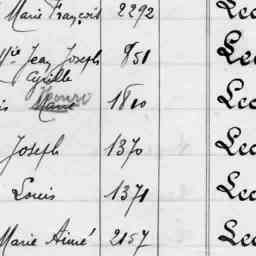 Marie François 2292 Lec
Jean Joseph 851 Lec
Cyrille
1810 Lec
Joseph 1370 Lec
Louis 1371 Lec
Marie Aimé 2157 Lec